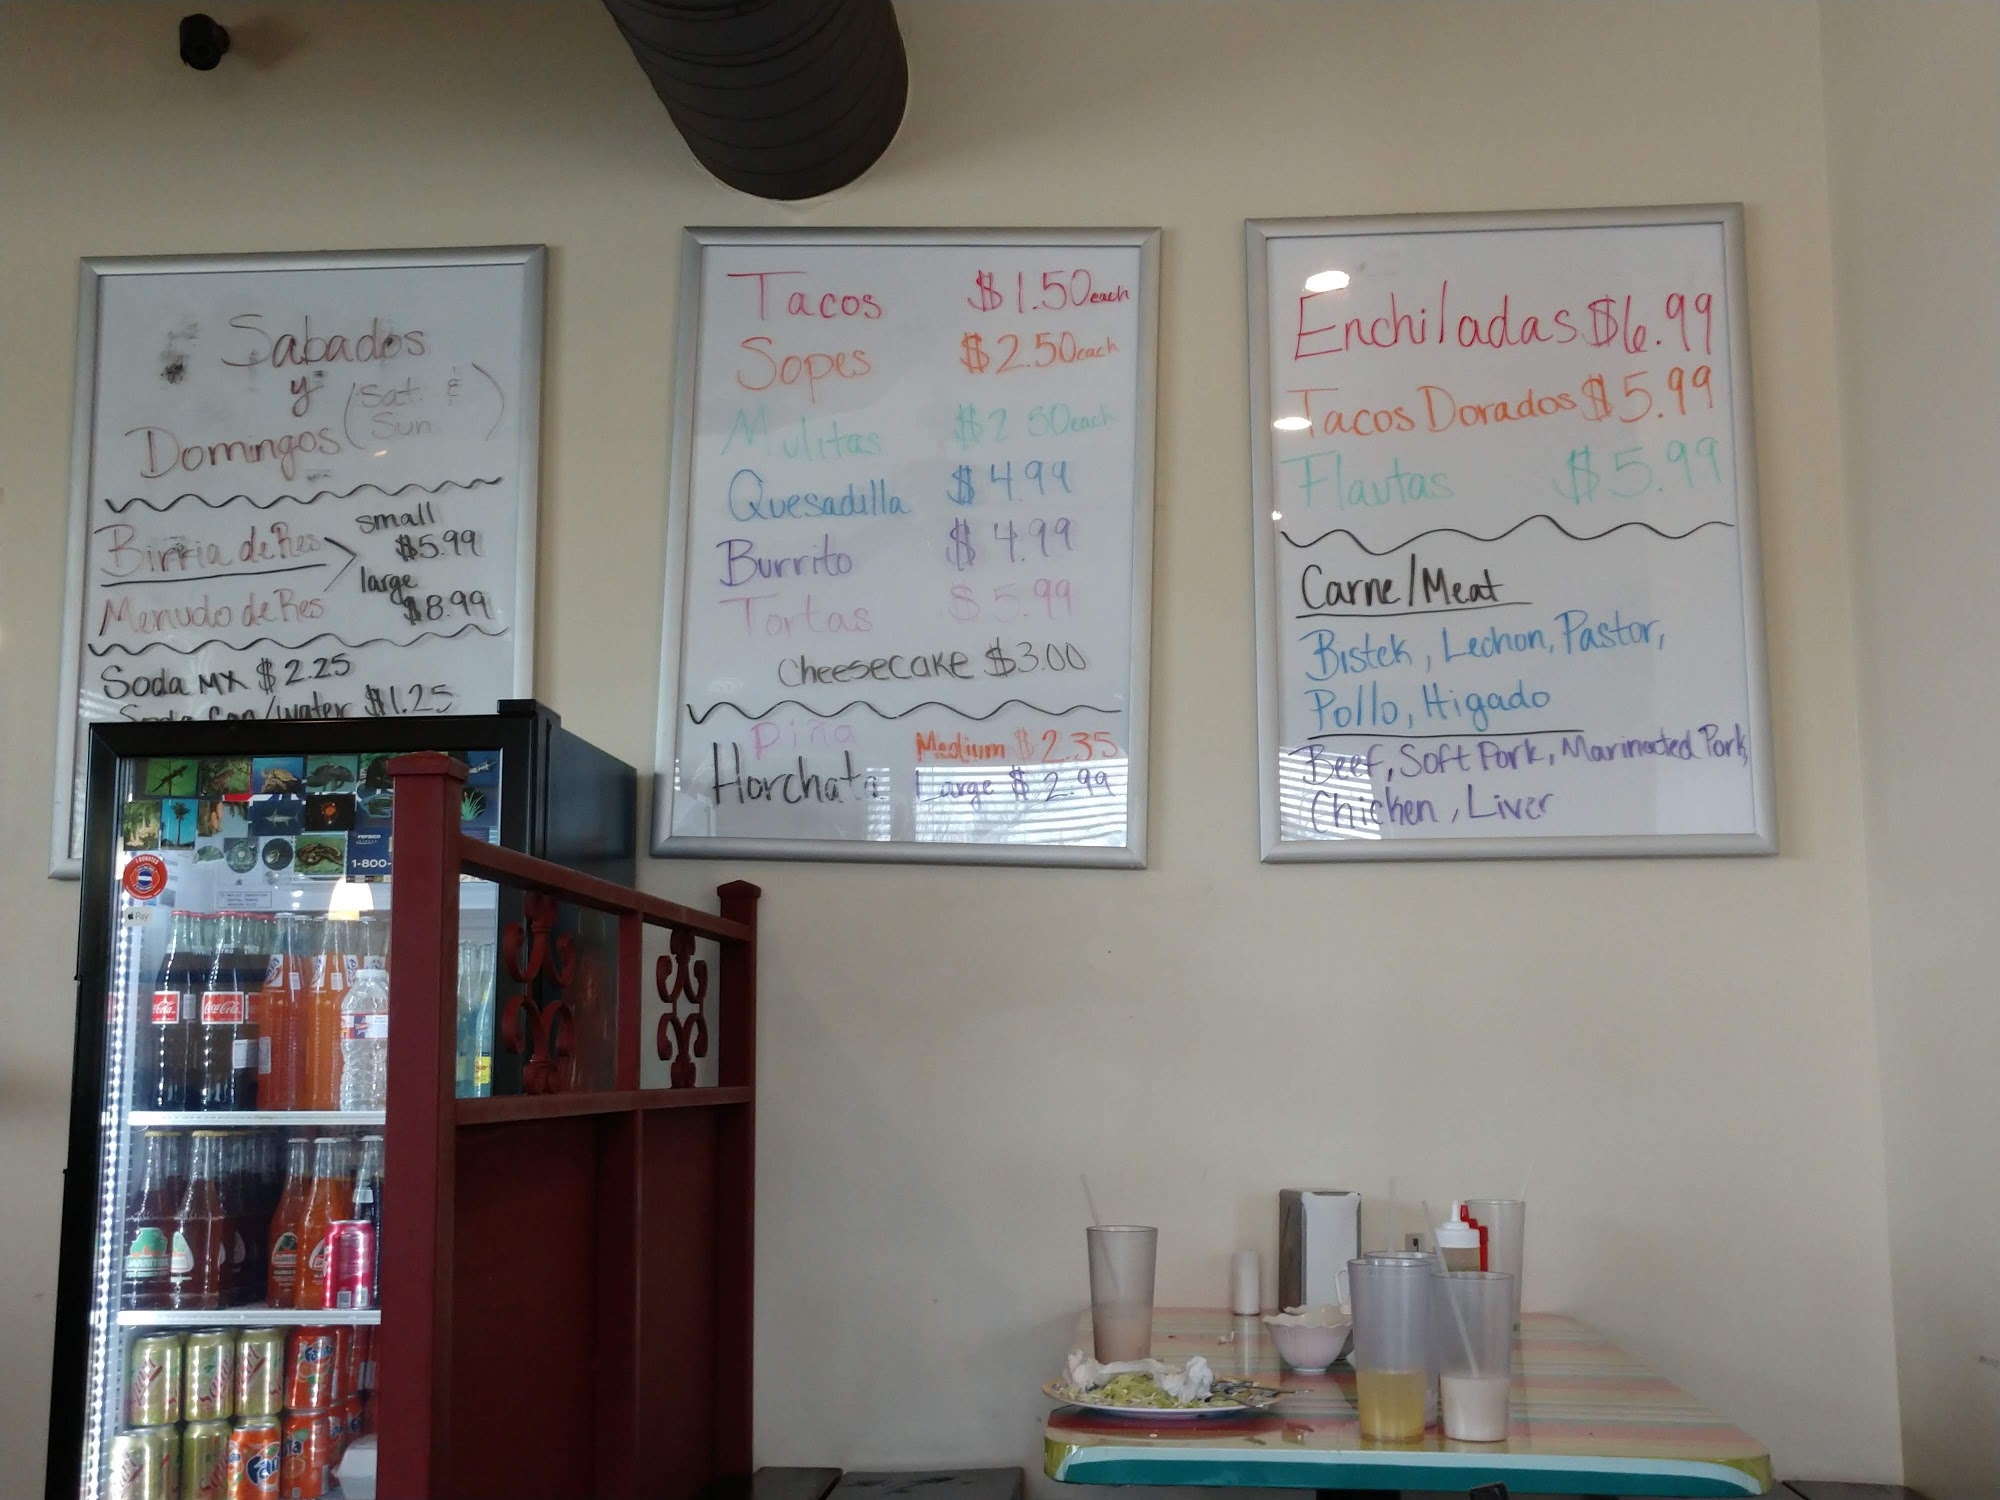 Sabados
y (Sat &
Sun)
Domingos
Birria de Res
Menudo de Res
small
$5.99
large
$8.99
Soda MX $2.25
Soda Can/water $1.25
Tacos $1.50 each
Sopes $2.50 each
Mulitas $2.50 each
Quesadilla $4.99
Burrito $4.99
Tortas $5.99
Cheesecake $3.00
Piña
Horchata
Medium $2.35
Large $2.99
Enchiladas $6.99
Tacos Dorados $5.99
Flautas $5.99
Carne/Meat
Bistek, Lechon, Pastor,
Pollo, Higado
Beef, Soft Pork, Marinated Pork,
Chicken, Liver
1-800-
Pay
Coca-Cola
Coca-Cola
Fanta
Fanta